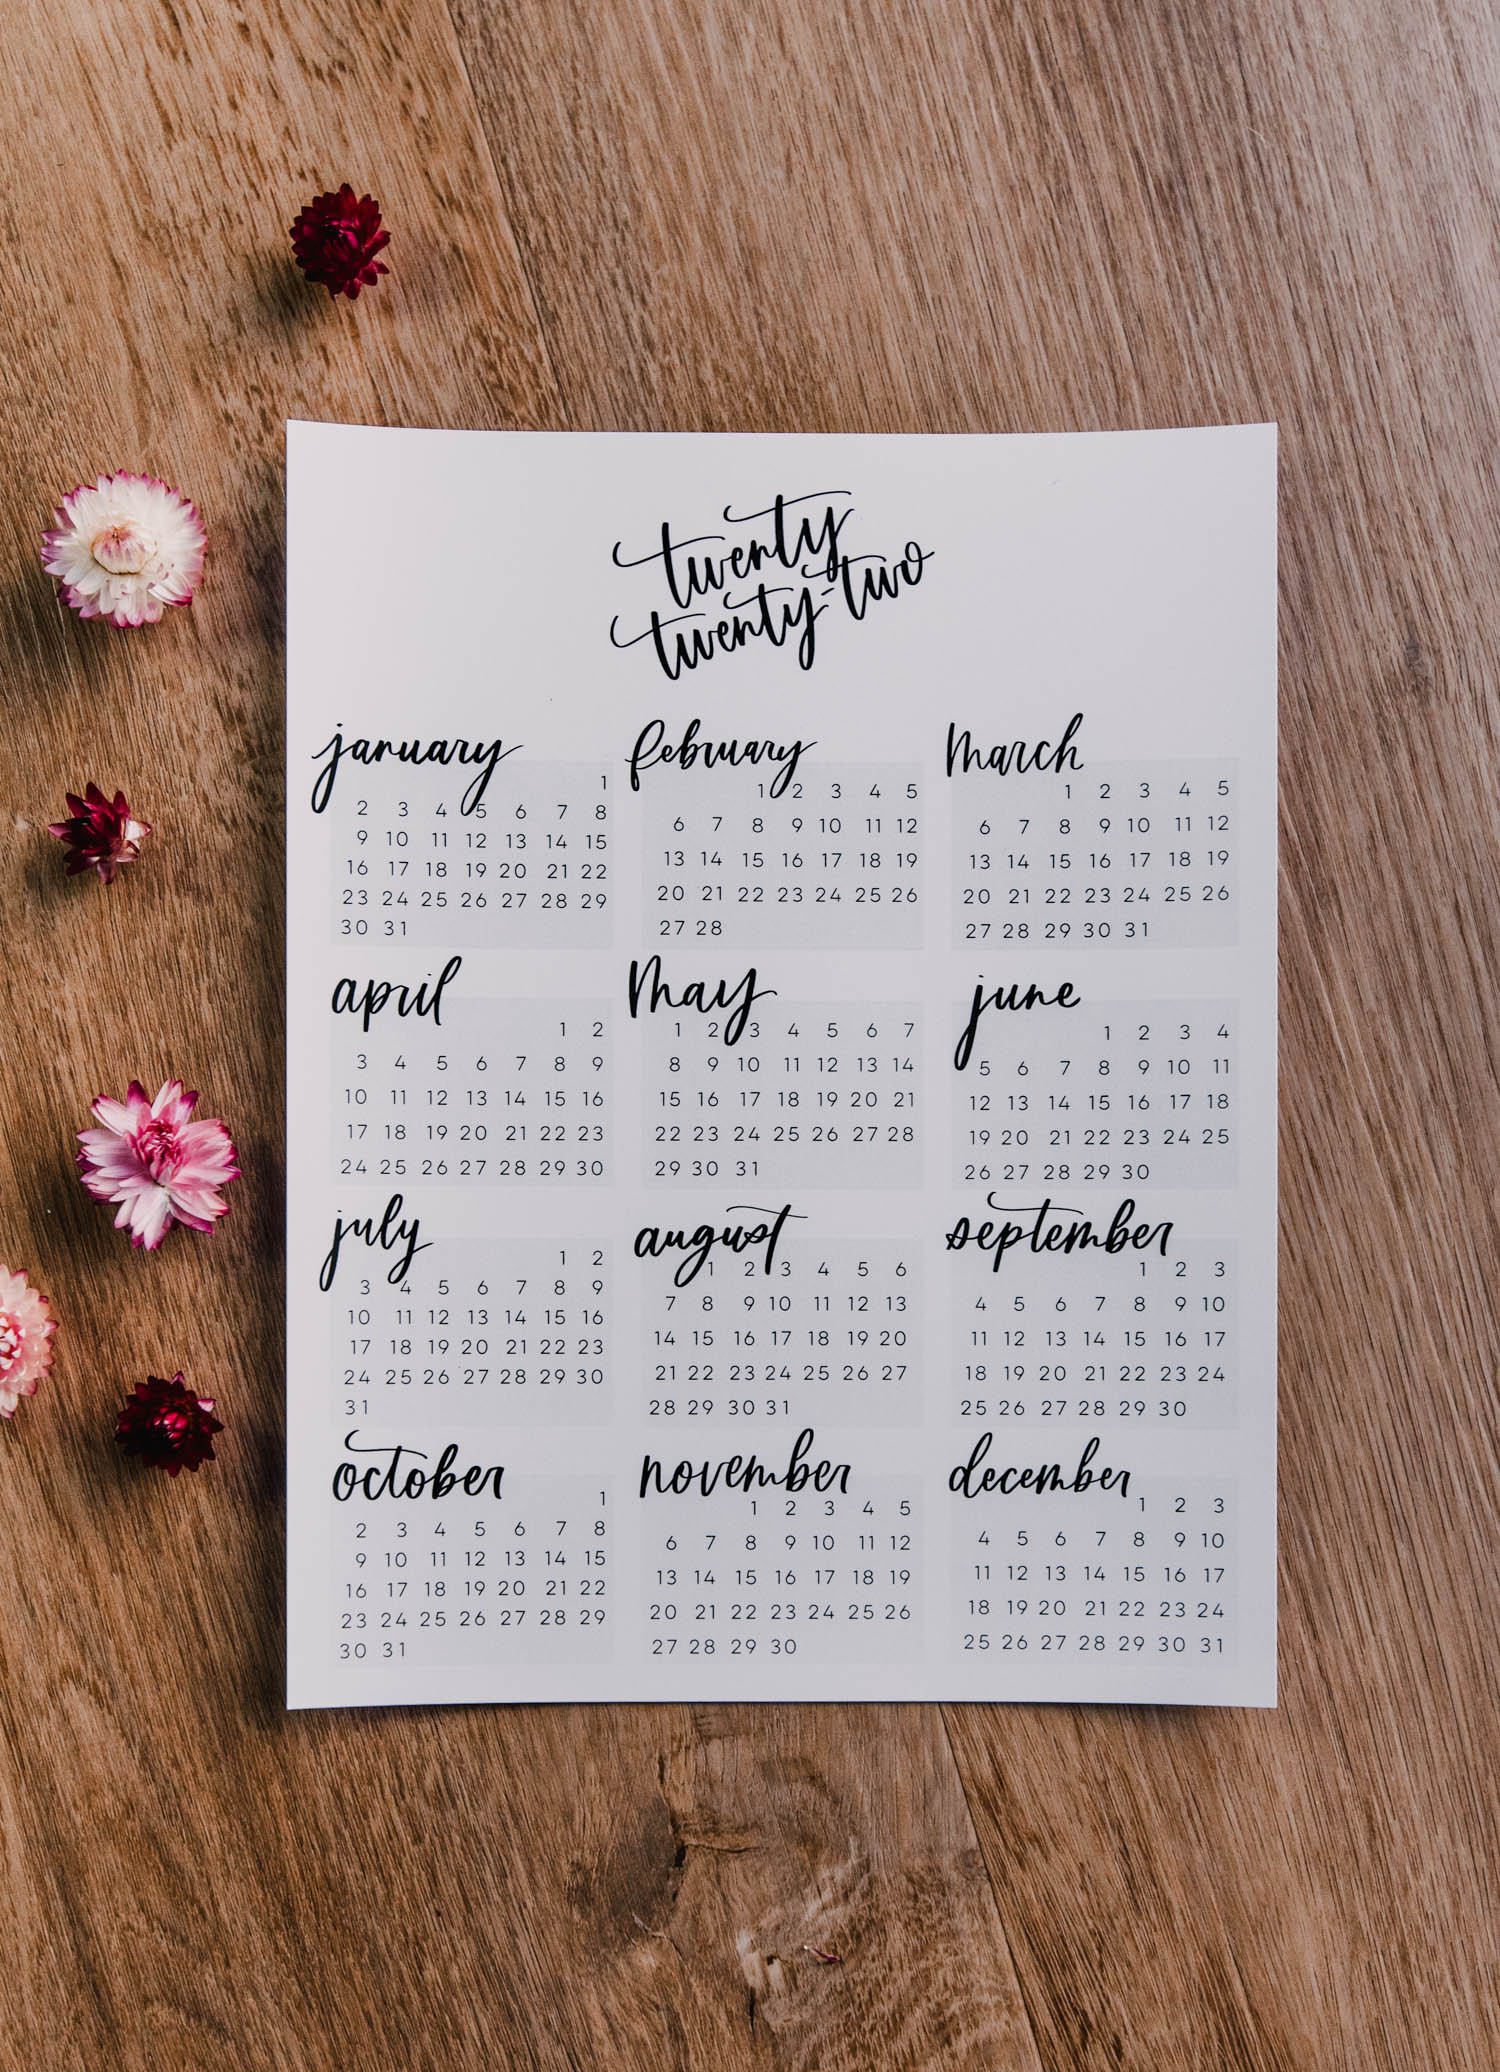 twenty
twenty-two
january
1
2 3 4 5 6 7 8
9 10 11 12 13 14 15
16 17 18 19 20 21 22
23 24 25 26 27 28 29
30 31
february
1 2 3 4 5
6 7 8 9 10 11 12
13 14 15 16 17 18 19
20 21 22 23 24 25 26
27 28
march
1 2 3 4 5
6 7 8 9 10 11 12
13 14 15 16 17 18 19
20 21 22 23 24 25 26
27 28 29 30 31
april
1 2
3 4 5 6 7 8 9
10 11 12 13 14 15 16
17 18 19 20 21 22 23
24 25 26 27 28 29 30
may
1 2 3 4 5 6 7
8 9 10 11 12 13 14
15 16 17 18 19 20 21
22 23 24 25 26 27 28
29 30 31
june
1 2 3 4
5 6 7 8 9 10 11
12 13 14 15 16 17 18
19 20 21 22 23 24 25
26 27 28 29 30
july
1 2
3 4 5 6 7 8 9
10 11 12 13 14 15 16
17 18 19 20 21 22 23
24 25 26 27 28 29 30
31
august
1 2 3 4 5 6
7 8 9 10 11 12 13
14 15 16 17 18 19 20
21 22 23 24 25 26 27
28 29 30 31
september
1 2 3
4 5 6 7 8 9 10
11 12 13 14 15 16 17
18 19 20 21 22 23 24
25 26 27 28 29 30
october
1
2 3 4 5 6 7 8
9 10 11 12 13 14 15
16 17 18 19 20 21 22
23 24 25 26 27 28 29
30 31
november
1 2 3 4 5
6 7 8 9 10 11 12
13 14 15 16 17 18 19
20 21 22 23 24 25 26
27 28 29 30
december
1 2 3
4 5 6 7 8 9 10
11 12 13 14 15 16 17
18 19 20 21 22 23 24
25 26 27 28 29 30 31